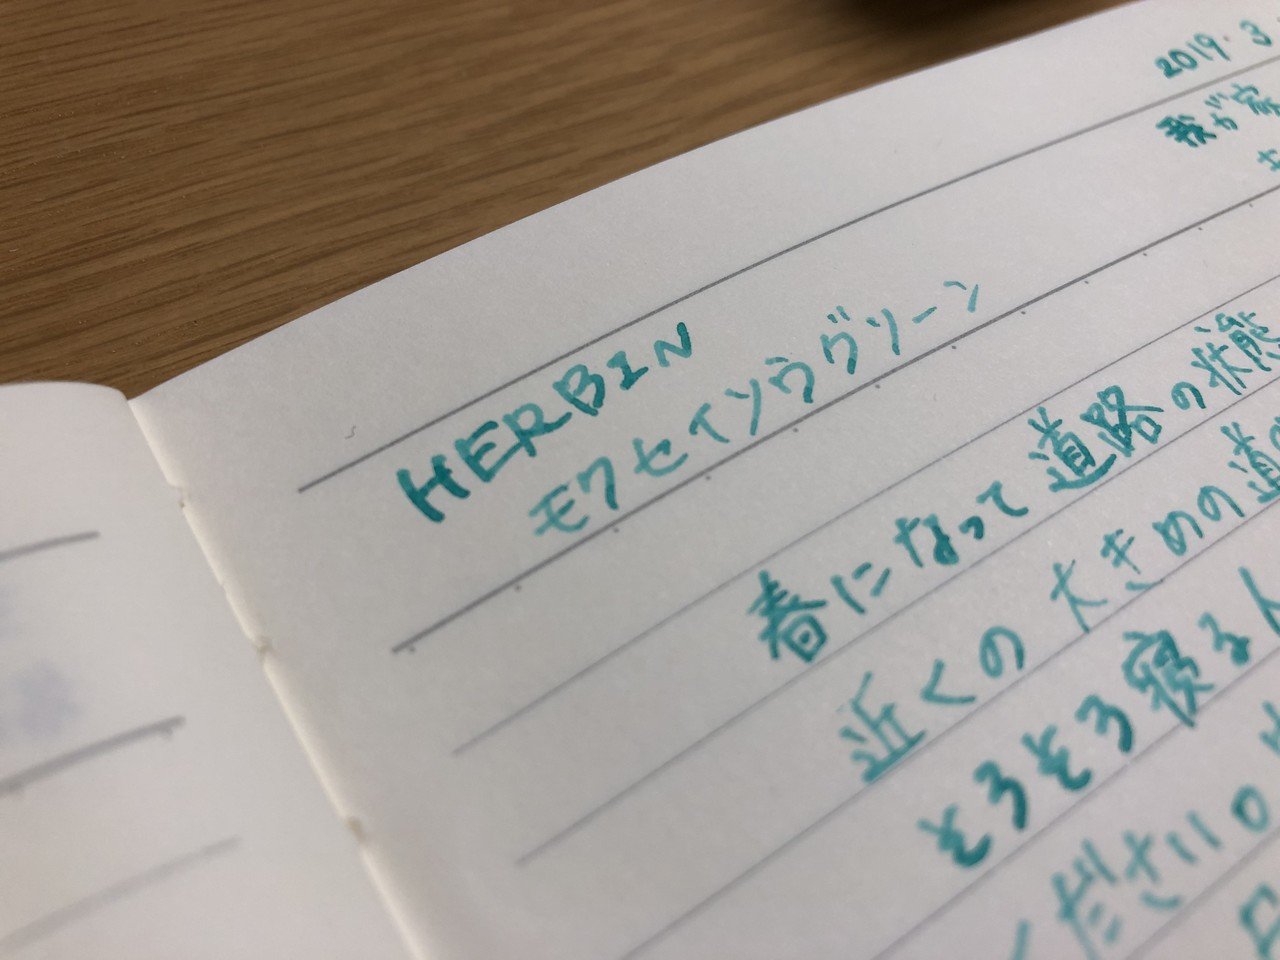 2019.3
我が家
HERBIN
モクセイソウグリーン
春になって道路の状態
近くの大きめの道の
そろそろ寝る人
ください